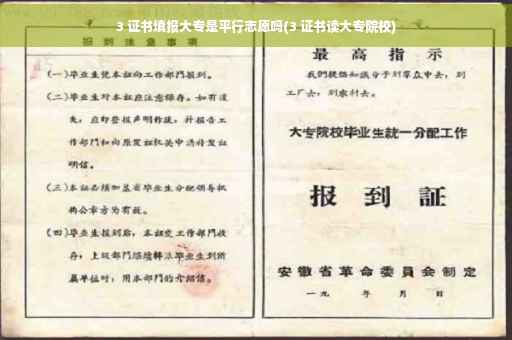 3 证书填报大专是平行志愿吗(3 证书读大专院校)
报到注意事项
(一)毕业生凭本证向工作部门报到。
(二)毕业生对本证应注意保存。如有遗
失,应即登报声明作废,并报告工
作部门和向原发证机关申请补发证
明信。
(三)本证必须加盖省毕业生分配领导机
构公章方为有效。
(四)毕业生报到后,本证交工作部门收
存;上级部门继续转派毕业生到所
属单位时,用本部门的介绍信。
最高指示
我们提倡知识分子到群众中去,到
工厂去,到农村去。
大专院校毕业生统一分配工作
报到证
安徽省革命委员会制定
一九 年 月 日